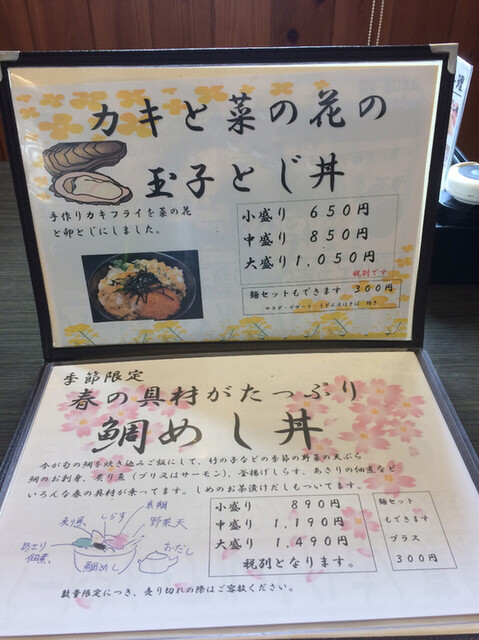 カキと菜の花の
玉子とじ丼
手作りカキフライを菜の花
と卵とじにしました。
小盛り 650円
中盛り 850円
大盛り 1,050円
税別です
麺セットもできます 300円
季節限定
春の具材がたっぷり
鯛めし丼
今が旬の鯛を炊き込みご飯にして、竹の子などの季節の野菜の天ぷら
鯛のお刺身、炙り魚(ブリ又はサーモン)、釜揚げしらす、あさりの佃煮など
いろんな春の具材が乗ってます。しめのお茶漬けだしもついてます。
小盛り 890円
中盛り 1,190円
大盛り 1,490円
税別となります。
麺セット
もできます
プラス
300円
炙り魚
しらす
真鯛
野菜天
あさり
佃煮
鯛めし
おだし
数量限定につき、売り切れの際はご容赦ください。